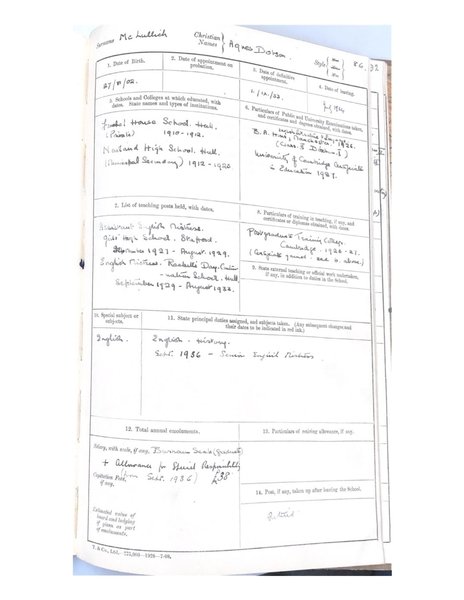 Surname McLullich Christian Names } Agnes Dobson. Style { 86.32
1. Date of Birth.
27/ /02.
2. Date of appointment on probation.
3. Date of definitive appointment.
4. Date of leaving.
5. Schools and Colleges at which educated, with dates. State names and types of institutions.
House School. Hull.
(Private) 1910-1912.
High School. Hull.
(Municipal Secondary) 1912-1920.
6. Particulars of Public and University Examinations taken, and certificates and degrees obtained, with dates.
B.A. Hons, Manchester
University of Cambridge Certificate
in Education 1927.
7. List of teaching posts held, with dates.
Assistant English Mistress.
Girls' High School. Stafford.
September 1927 - August 1929.
English Mistress. Day
School. Hull.
September 1929 - August 1932.
8. Particulars of training in teaching, if any, and certificates or diplomas obtained, with dates.
Postgraduate Training College.
Cambridge. 1926-27.
9. State external teaching or official work undertaken, if any, in addition to duties in the School.
10. Special subject or subjects.
English.
11. State principal duties assigned, and subjects taken. (Any subsequent changes, and their dates to be indicated in red ink.)
English. History.
Sept. 1936 - Senior English Mistress
12. Total annual emoluments.
Salary, with scale, if any, Burnham Scale (Graduate)
+ Allowance for Special Responsibility
Capitation Fees, if any. (from Sept. 1936) £38
Estimated value of board and lodging if given as part of emoluments.
13. Particulars of retiring allowance, if any.
14. Post, if any, taken up after leaving the School.
Retired